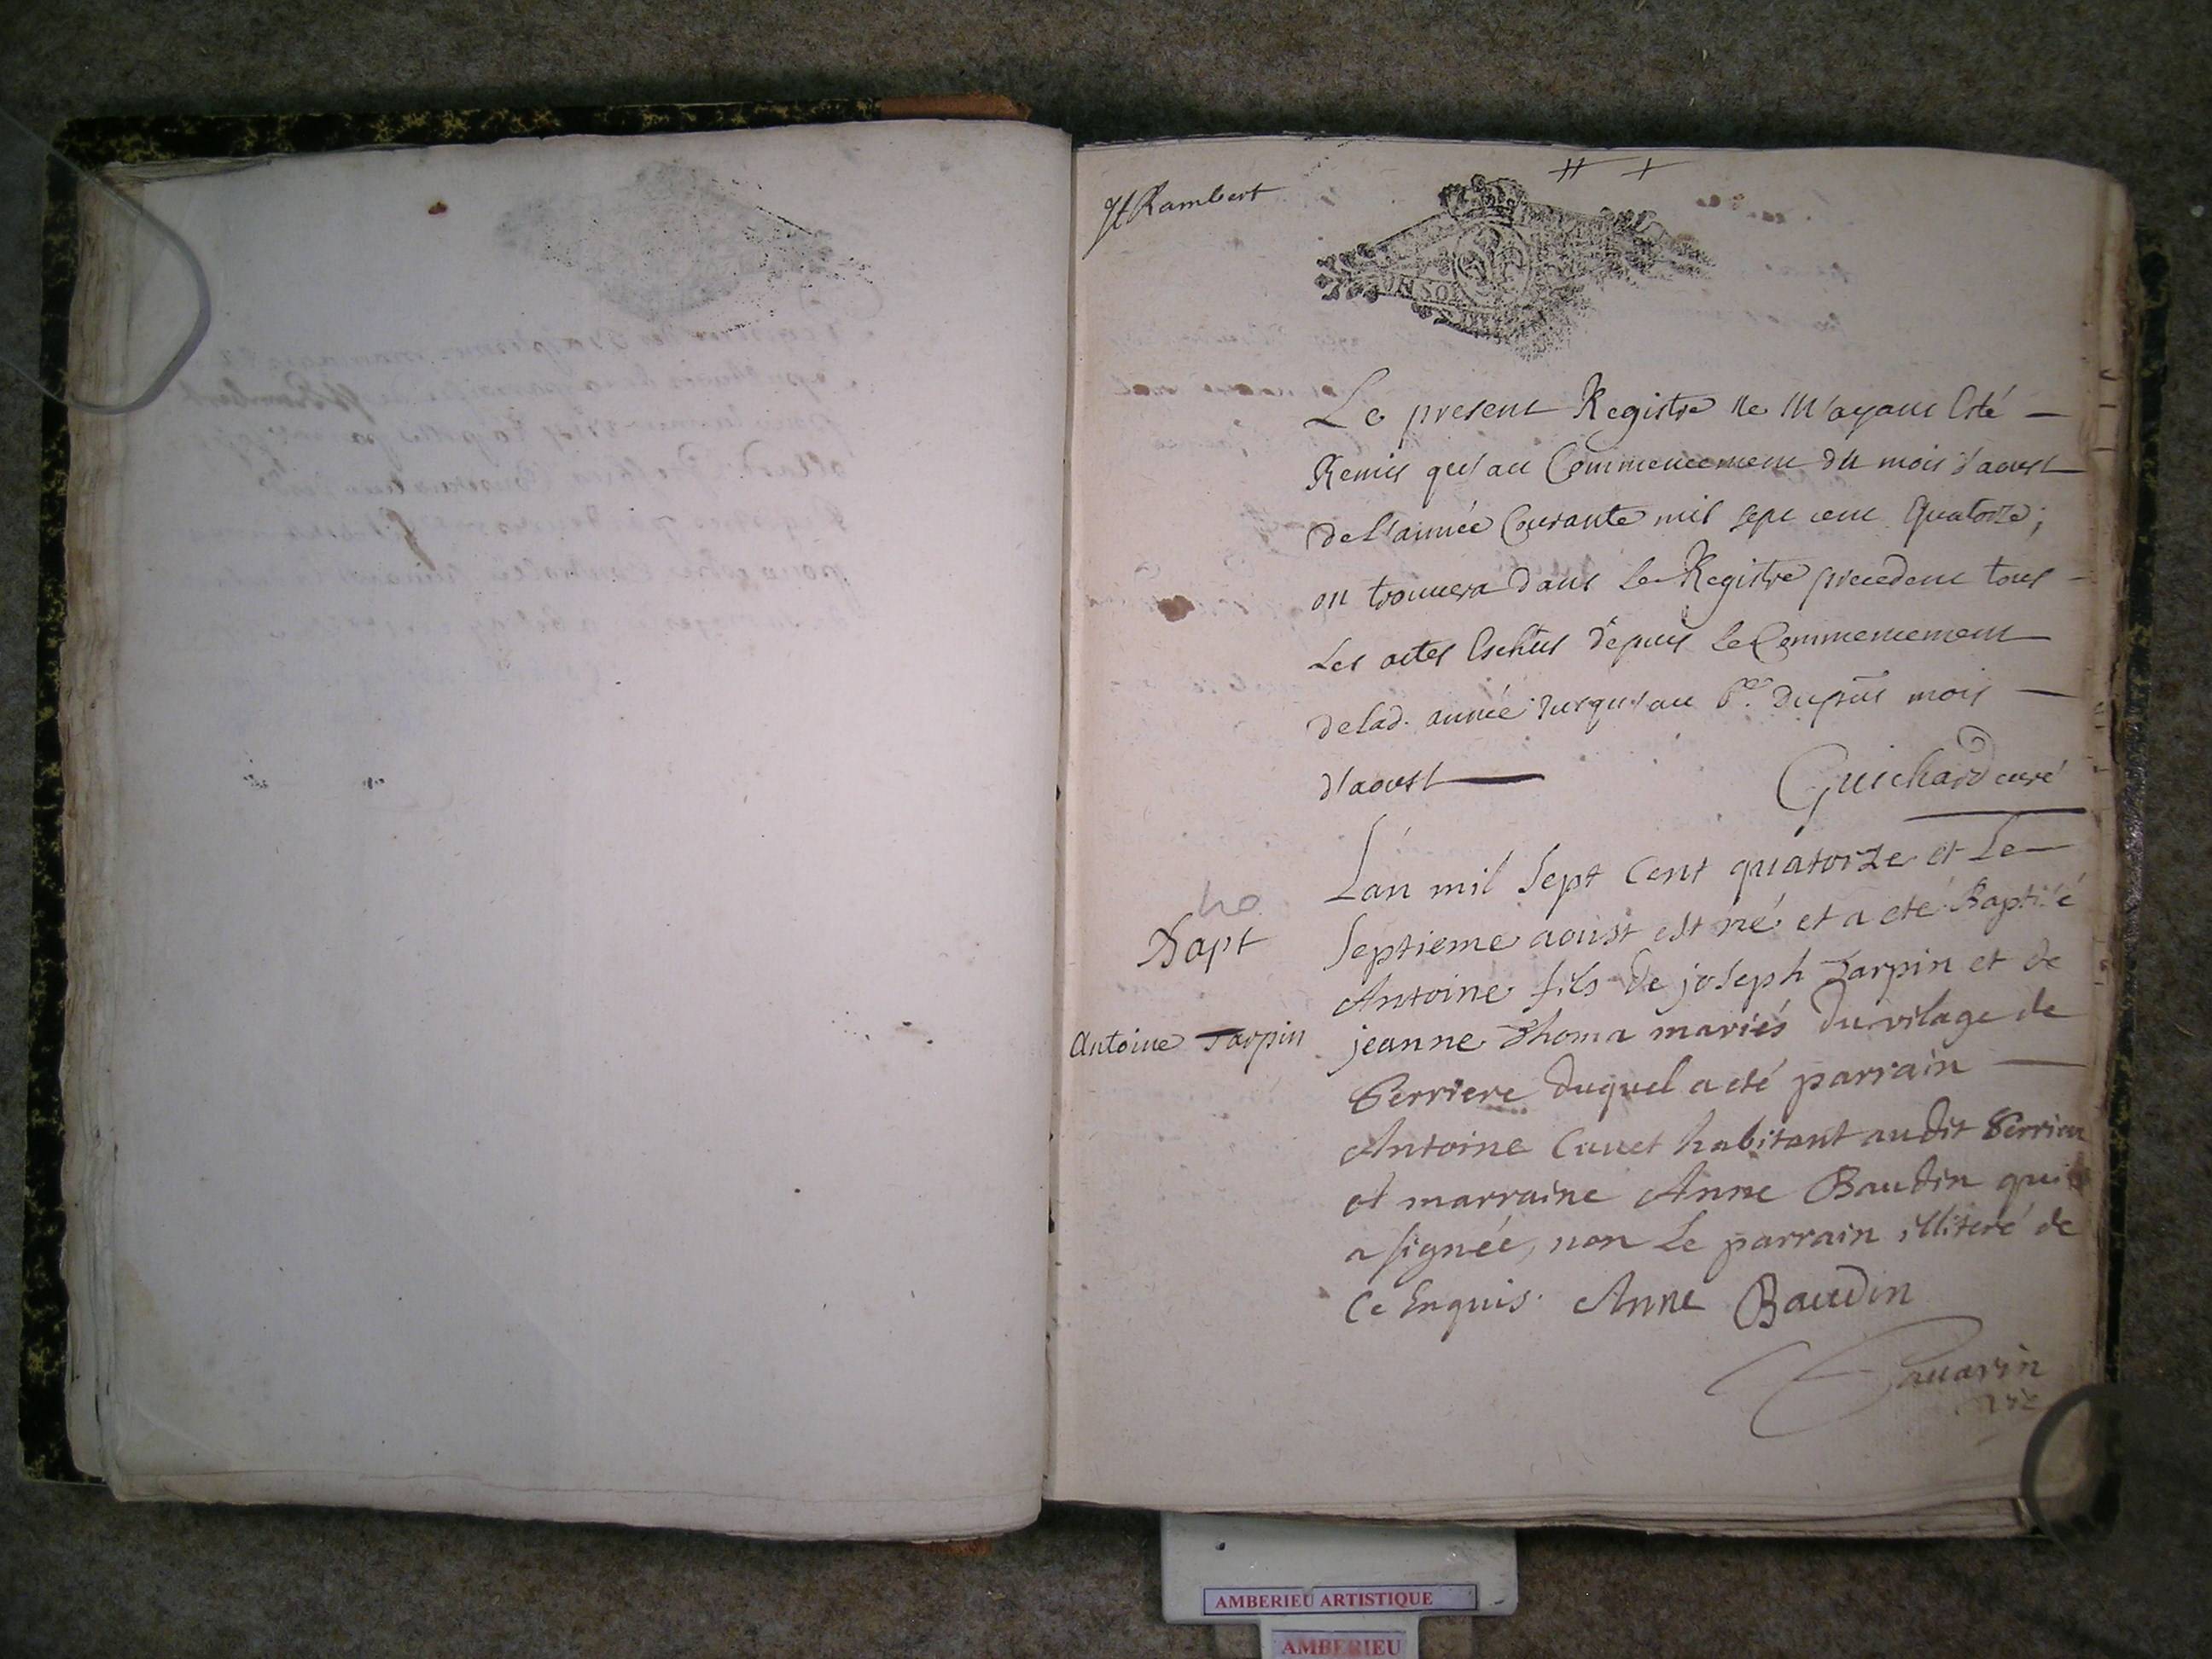 St Rambert
UN SOL
Le present Registre ne m'ayant esté
Remis qu'au Commencement du mois d'aoust
de l'année Courante mil sept cent quatorze;
on trouuera dans le Registre precedent tous
les actes Eschus depuis le Commencement
de lad. année jusqu'au pr. du pnt mois
d'aoust
Guichard curé
L'an mil sept cent quatorze et le
septieme aoust est né et a eté Baptisé
Antoine fils de joseph Tarpin et de
jeanne Thoma mariés du vilage de
Serriere duquel a eté parrain
Antoine Cuuet habitant audit Serriere
et marraine Anne Baudin qui
a signée, non le parrain illiteré de
Ce Enquis. Anne Baudin
Sauarin
vic
Bapt
Antoine Tarpin
AMBERIEU ARTISTIQUE
AMBERIEU